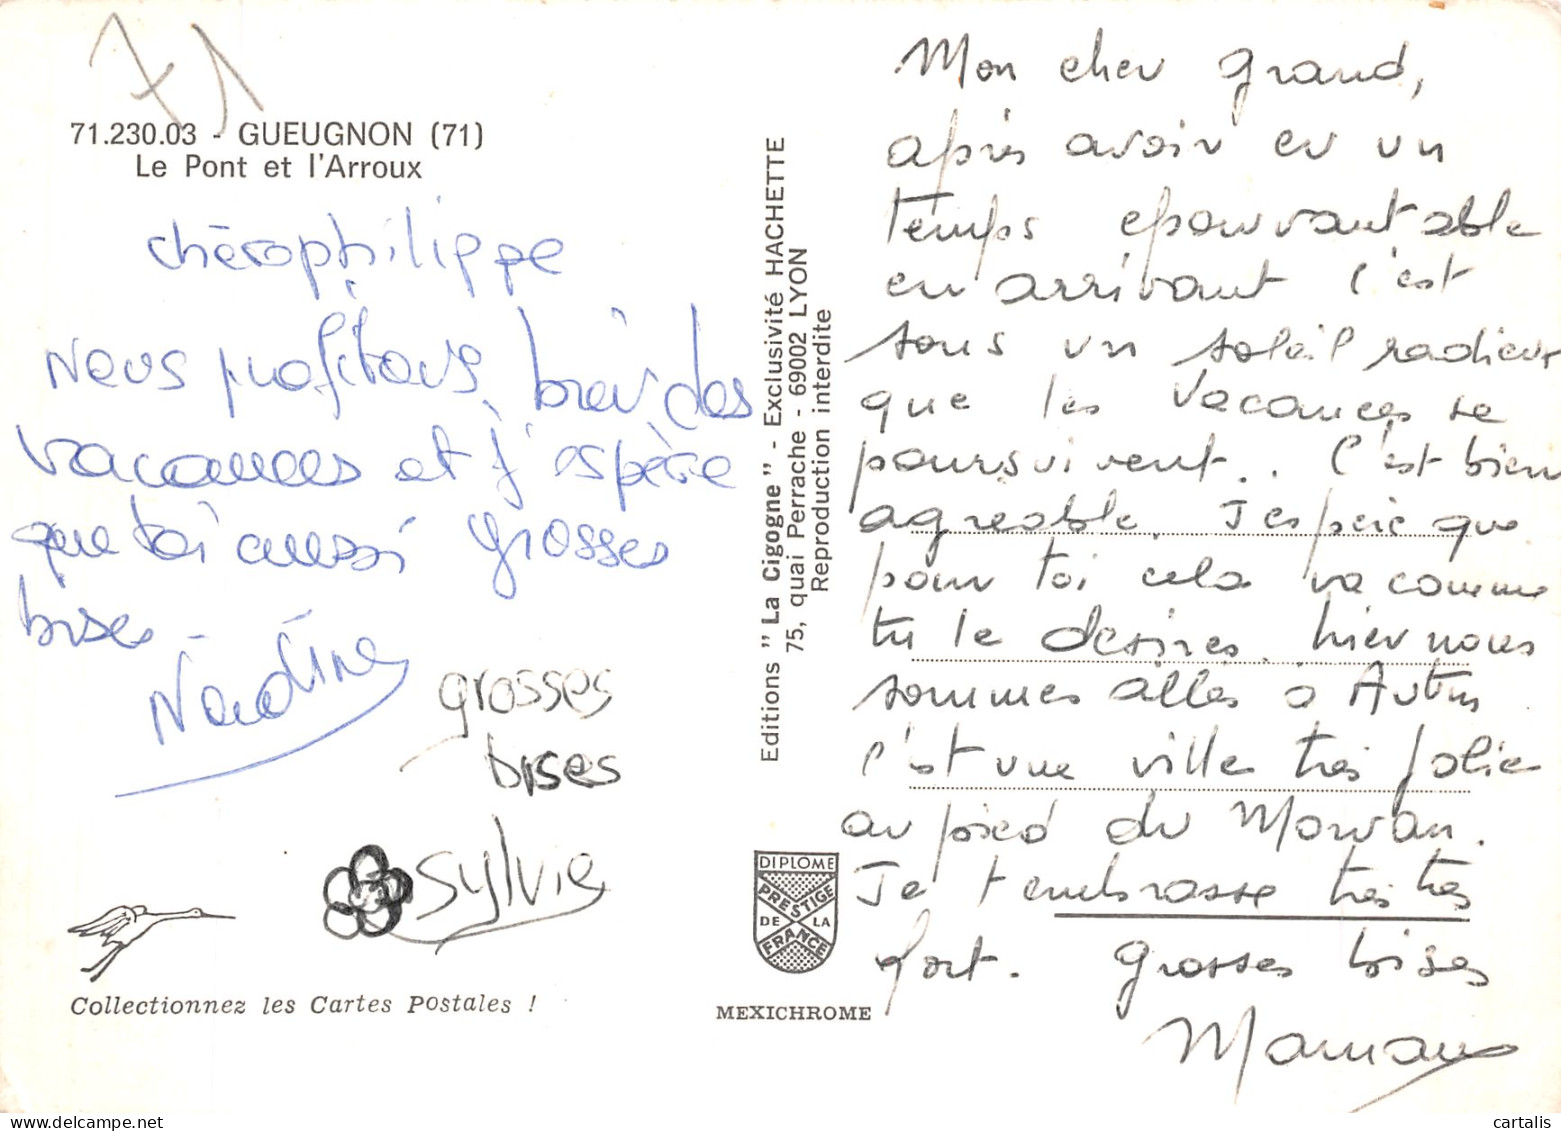 71
71.230.03 - GUEUGNON (71)
Le Pont et l'Arroux
chérophilippe
Nous profitons bien des
vacances et j'espère
que toi aussi grosses
bises -
Nadine
grosses
bises
sylvie
Collectionnez les Cartes Postales !
Editions "La Cigogne" - Exclusivité HACHETTE
75, quai Perrache - 69002 LYON
Reproduction interdite
DIPLOME
PRESTIGE
DE LA
FRANCE
MEXICHROME
Mon cher grand,
après avoir eu un
temps epouvantable
en arrivant c'est
sous un soleil radieux
que les vacances se
poursuivent.. C'est bien
agreable. J'espère que
pour toi cela va comme
tu le desires. hier nous
sommes allés à Autun
c'est une ville très jolie
au pied du Morvan.
Je t'embrasse très très
fort. grosses bises
Maman
cartalis